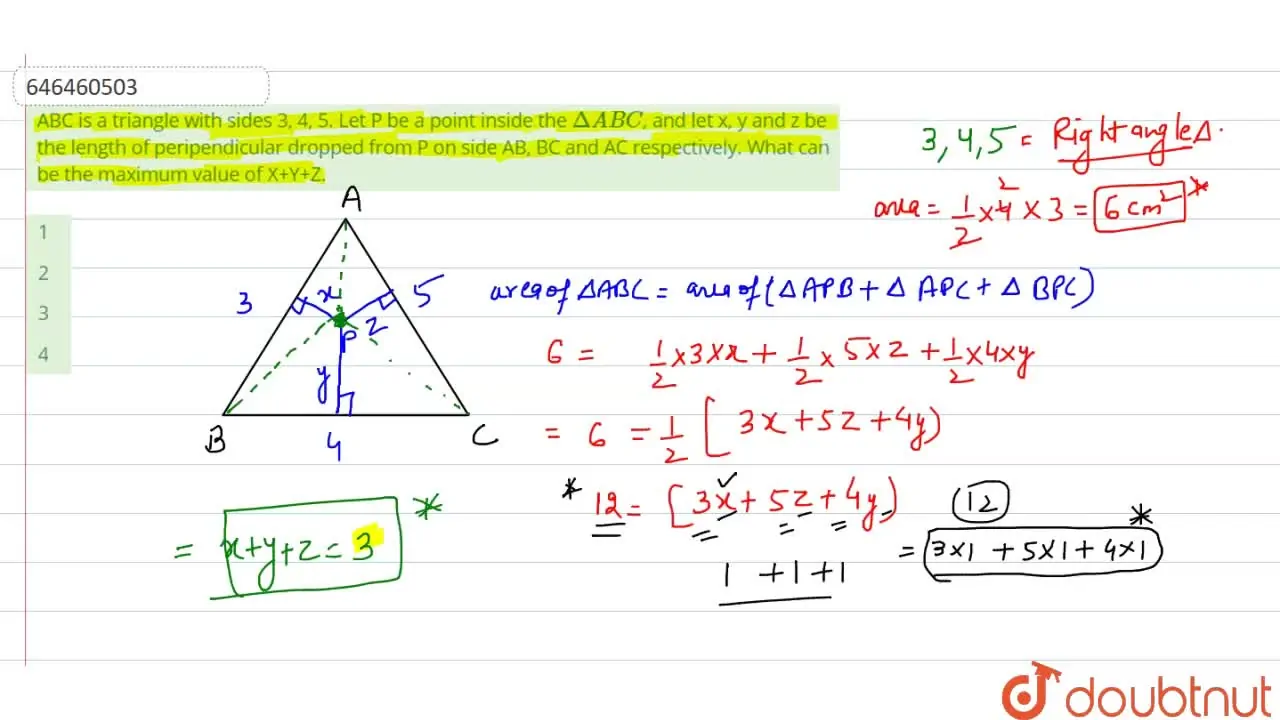 646460503
ABC is a triangle with sides 3, 4, 5. Let P be a point inside the ΔABC, and let x, y and z be
the length of peripendicular dropped from P on side AB, BC and AC respectively. What can
be the maximum value of X+Y+Z.
3, 4, 5 = Right angle Δ.
area = 1/2 × 4 2 × 3 = 6 cm² *
1
2
3
4
A
3
x
5
z
P
y
B
4
C
area of ΔABC = area of (ΔAPB + Δ APC + Δ BPC)
6 = 1/2 × 3 × x + 1/2 × 5 × z + 1/2 × 4 × y
= 6 = 1/2 [ 3x + 5z + 4y )
* 12 = [ 3x + 5z + 4y )
12
= 3×1 + 5×1 + 4×1 *
1 + 1 + 1
= x+y+z = 3 *
doubtnut